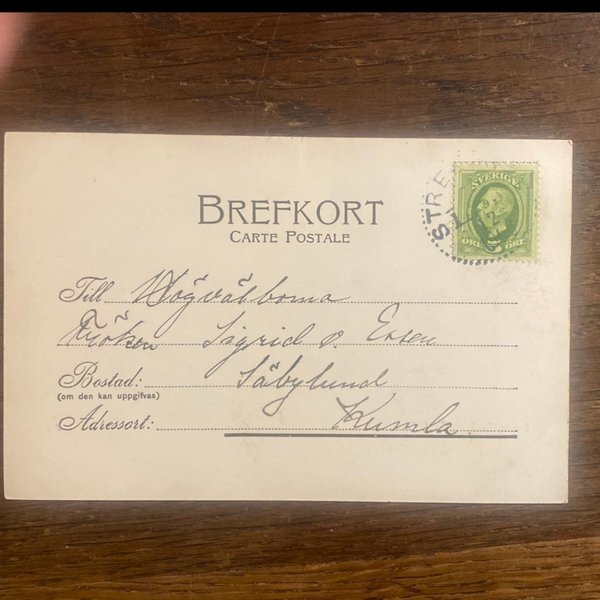 BREFKORT
CARTE POSTALE
SVERIGE
ÖRE 5 ÖRE
STRE
Till Högvälborna
Fröken Sigrid v. Essen
Bostad: Säbylund
(om den kan uppgifvas)
Adressort: Kumla